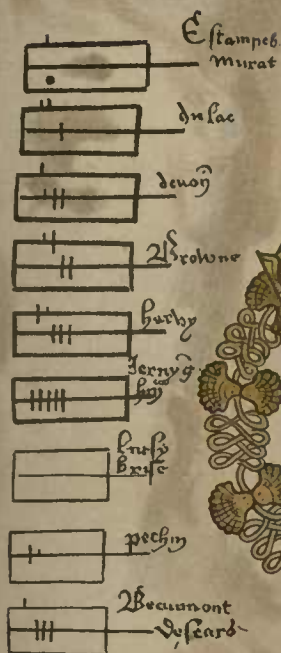 Estampes
murat
dulac
devon
Browne
harby
Jernyg
brise
pechin
Beaumont
descars